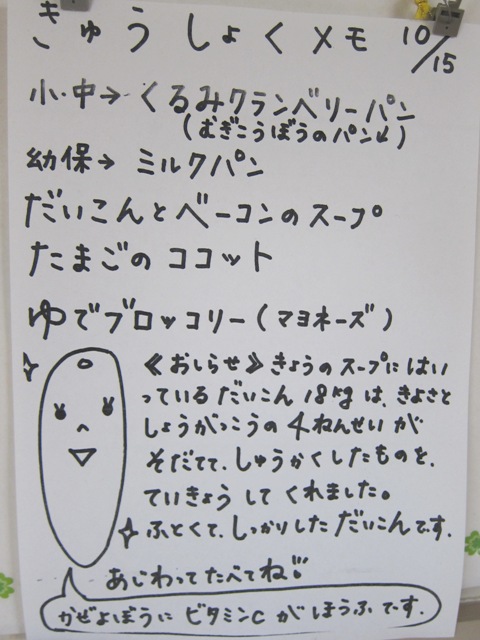 きゅうしょくメモ 10/15
小・中→くるみクランベリーパン
(むぎこうぼうのパン↓)
幼保→ミルクパン
だいこんとベーコンのスープ
たまごのココット
ゆでブロッコリー(マヨネーズ)
《おしらせ》きょうのスープにはい
っているだいこん18kgは、きよさと
しょうがっこうの4ねんせいが
そだてて、しゅうかくしたものを、
ていきょうしてくれました。
ふとくて、しっかりしただいこんです。
あじわってたべてね!!
かぜよぼうにビタミンCがほうふです。